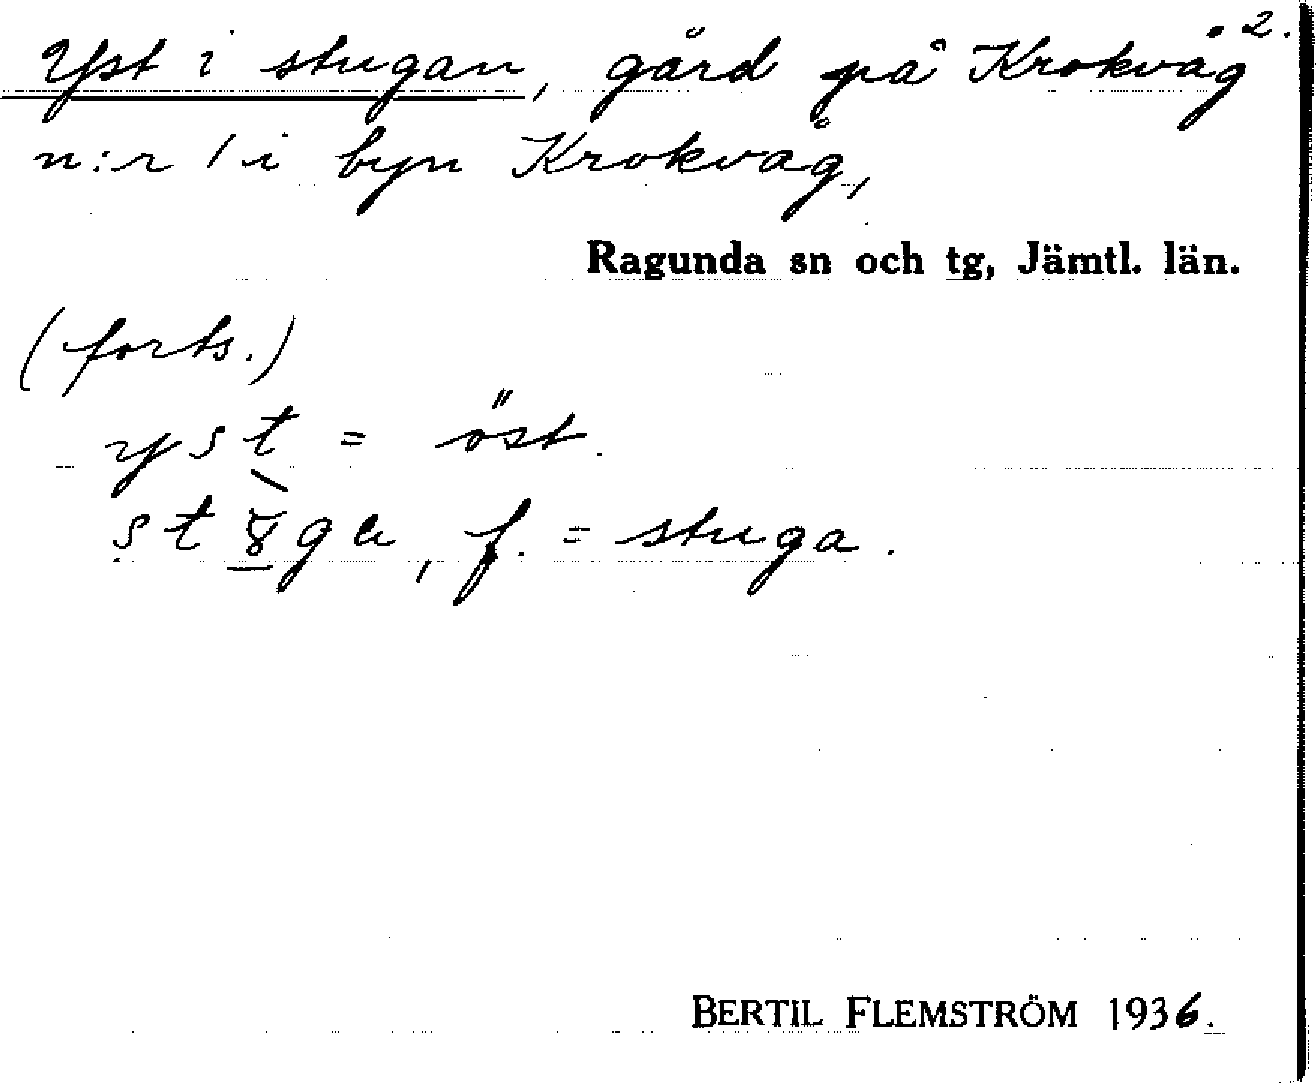 2.
Yst i stugan, gård på Krokvåg
n:r 1 i byn Krokvåg,
Ragunda sn och tg, Jämtl. län.
(forts.)
yst = öst.
, f. = stuga.
BERTIL FLEMSTRÖM 1936.